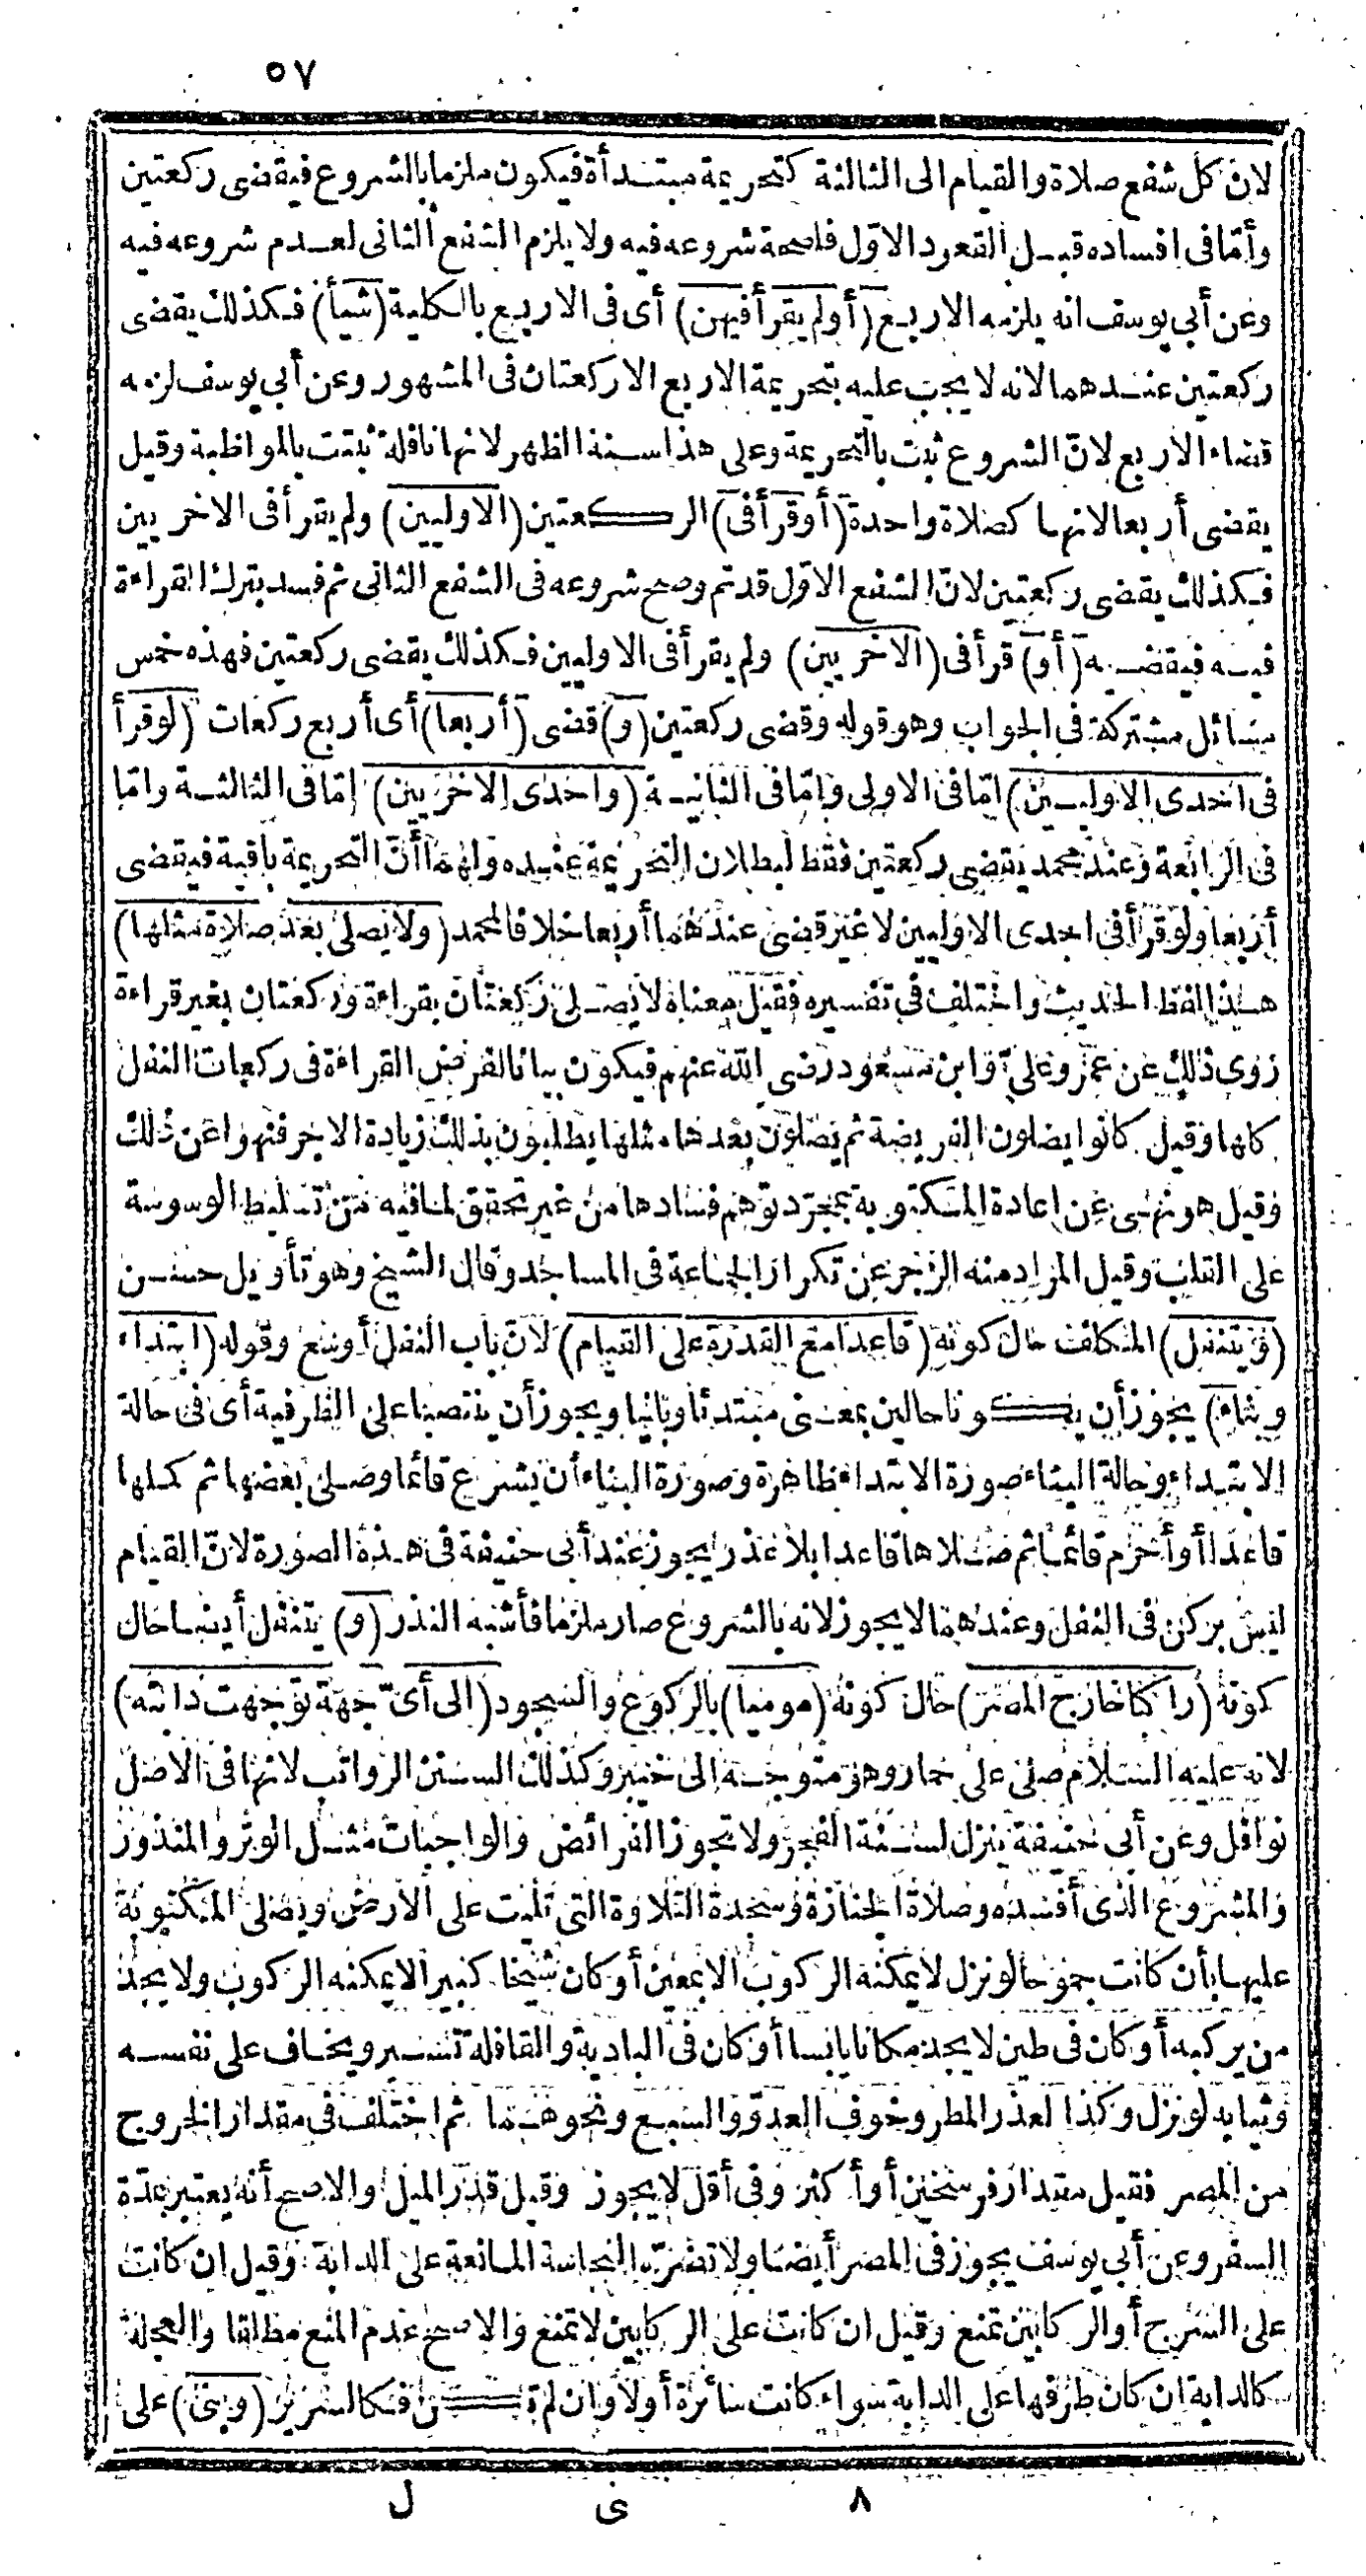 ٥٧
لان كل شفع صلاة والقيام الى الثالثة كتحريمة مبتدأة فيكون ملزما بالشروع فيقضى ركعتين
وأمّا فى افساده قبل القعود الاوّل فلصحة شروعه فيه ولا يلزم الشفع الثانى لعدم شروعه فيه
وعن أبى يوسف انه يلزمه الاربع (أو لم يقرأ فيهن) أى فى الاربع بالكلية (شيأ) فكذلك يقضى
ركعتين عندهما لانه لا يجب عليه بتحريمة الاربع الا ركعتان فى المشهور وعن أبى يوسف لزمه
قضاء الاربع لانّ الشروع ثبت بالتحريمة وعلى هذا سنة الظهر لانها نافلة ثبتت بالمواظبة وقيل
يقضى أربعا لانها كصلاة واحدة (أو قرأ فى) الركعتين (الاوليين) ولم يقرأ فى الاخريين
فكذلك يقضى ركعتين لانّ الشفع الاوّل قد تم وصح شروعه فى الشفع الثانى ثم فسد بترك القراءة
فيه فيقضيه (أو) قرأ فى (الاخريين) ولم يقرأ فى الاوليين فكذلك يقضى ركعتين فهذه خمس
مسائل مشتركة فى الجواب وهو قوله وقضى ركعتين (و) قضى (أربعا) أى أربع ركعات (لو قرأ
فى احدى الاوليين) امّا فى الاولى وامّا فى الثانية (واحدى الاخريين) امّا فى الثالثة وامّا
فى الرابعة وعند محمد يقضى ركعتين فقط لبطلان التحريمة عنده ولهما أنّ التحريمة باقية فيقضى
أربعا ولو قرأ فى احدى الاوليين لا غير قضى عندهما أربعا خلافا لمحمد (ولا يصلى بعد صلاة مثلها)
هذا لفظ الحديث واختلف فى تفسيره فقيل معناه لا يصلى ركعتان بقراءة وركعتان بغير قراءة
روى ذلك عن عمر وعلىّ وابن مسعود رضى الله عنهم فيكون بيانا لفرض القراءة فى ركعات النفل
كلها وقيل كانوا يصلون الفريضة ثم يصلون بعدها مثلها يطلبون بذلك زيادة الاجر فنهوا عن ذلك
وقيل هو نهى عن اعادة المكتوبة بمجرّد توهم فسادها من غير تحقق لما فيه من تسليط الوسوسة
على القلب وقيل المراد منه الزجر عن تكرار الجماعة فى المساجد وقال الشيخ وهو تأويل حسن
(ويتنفل) المكلف حال كونه (قاعدا مع القدرة على القيام) لانّ باب النفل أوسع وقوله (ابتداء
وبناء) يجوز أن يكونا حالين بمعنى مبتدئا وبانيا ويجوز أن ينتصبا على الظرفية أى فى حالة
الابتداء وحالة البناء صورة الابتداء ظاهرة وصورة البناء أن يشرع قائما وصلى بعضها ثم كملها
قاعدا أو أحرم قائما ثم صلاها قاعدا بلا عذر يجوز عند أبى حنيفة فى هذه الصورة لانّ القيام
ليس بركن فى النفل وعندهما لا يجوز لانه بالشروع صار ملزما فأشبه النذر (و) يتنفل أيضا حال
كونه (راكبا خارج المصر) حال كونه (موميا) بالركوع والسجود (الى أىّ جهة توجهت دابته)
لانه عليه السلام صلى على حمار وهو متوجه الى خيبر وكذلك السنن الرواتب لانها فى الاصل
نوافل وعن أبى حنيفة ينزل لسنة الفجر ولا تجوز الفرائض والواجبات مثل الوتر والمنذور
والمشروع الذى أفسده وصلاة الجنازة وسجدة التلاوة التى تليت على الارض ويصلى المكتوبة
عليها بأن كانت جموحا لو نزل لا يمكنه الركوب الا بمعين أو كان شيخا كبيرا لا يمكنه الركوب ولا يجد
من يركبه أو كان فى طين لا يجد مكانا يابسا أو كان فى البادية والقافلة تسير ويخاف على نفسه
وثيابه لو نزل وكذا لعذر المطر وخوف العدوّ والسبع ونحوهما ثم اختلف فى مقدار الخروج
من المصر فقيل مقدار فرسخين أو أكثر وفى أقل لا يجوز وقيل قدر الميل والاصح أنه يعتبر بمدة
السفر وعن أبى يوسف يجوز فى المصر أيضا ولا تضرّه النجاسة المانعة على الدابة وقيل ان كانت
على السرج أو الركابين تمنع وقيل ان كانت على الركابين لا تمنع والاصح عدم المنع مطلقا والعجلة
كالدابة ان كان طرفها على الدابة سواء كانت سائرة أو لا وان لم تكن فكالسرير (وبنى) على
٨ ى ل